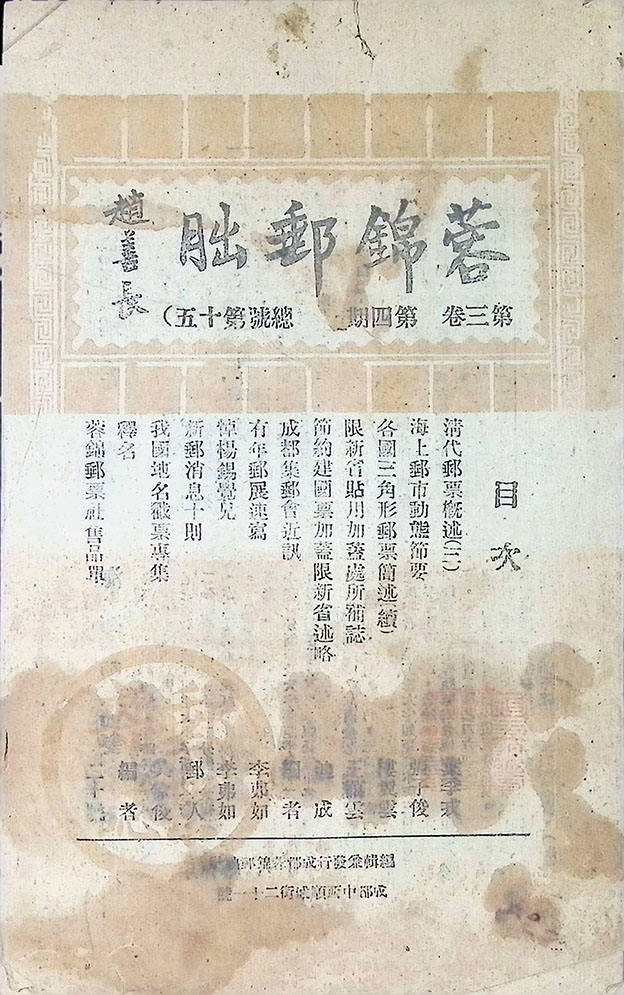 蓉錦郵朏
趙善長
第三卷 第四期 總號第十五)
目次
清代郵票概述(三)
海上郵市動態節要
各國三角形郵票簡述(續)
限新省貼用加蓋處所補誌
節約建國票加蓋限新省述略
成 成都集郵會近訊
者
有年郵展速寫
李弗如
悼楊錫覺兄
李弗如
新郵消息十則
郵 人
我國地名戳票專集
釋名
編者
蓉錦郵票社售品單
編輯兼發行成都蓉錦郵
成都中 順城街二十一號